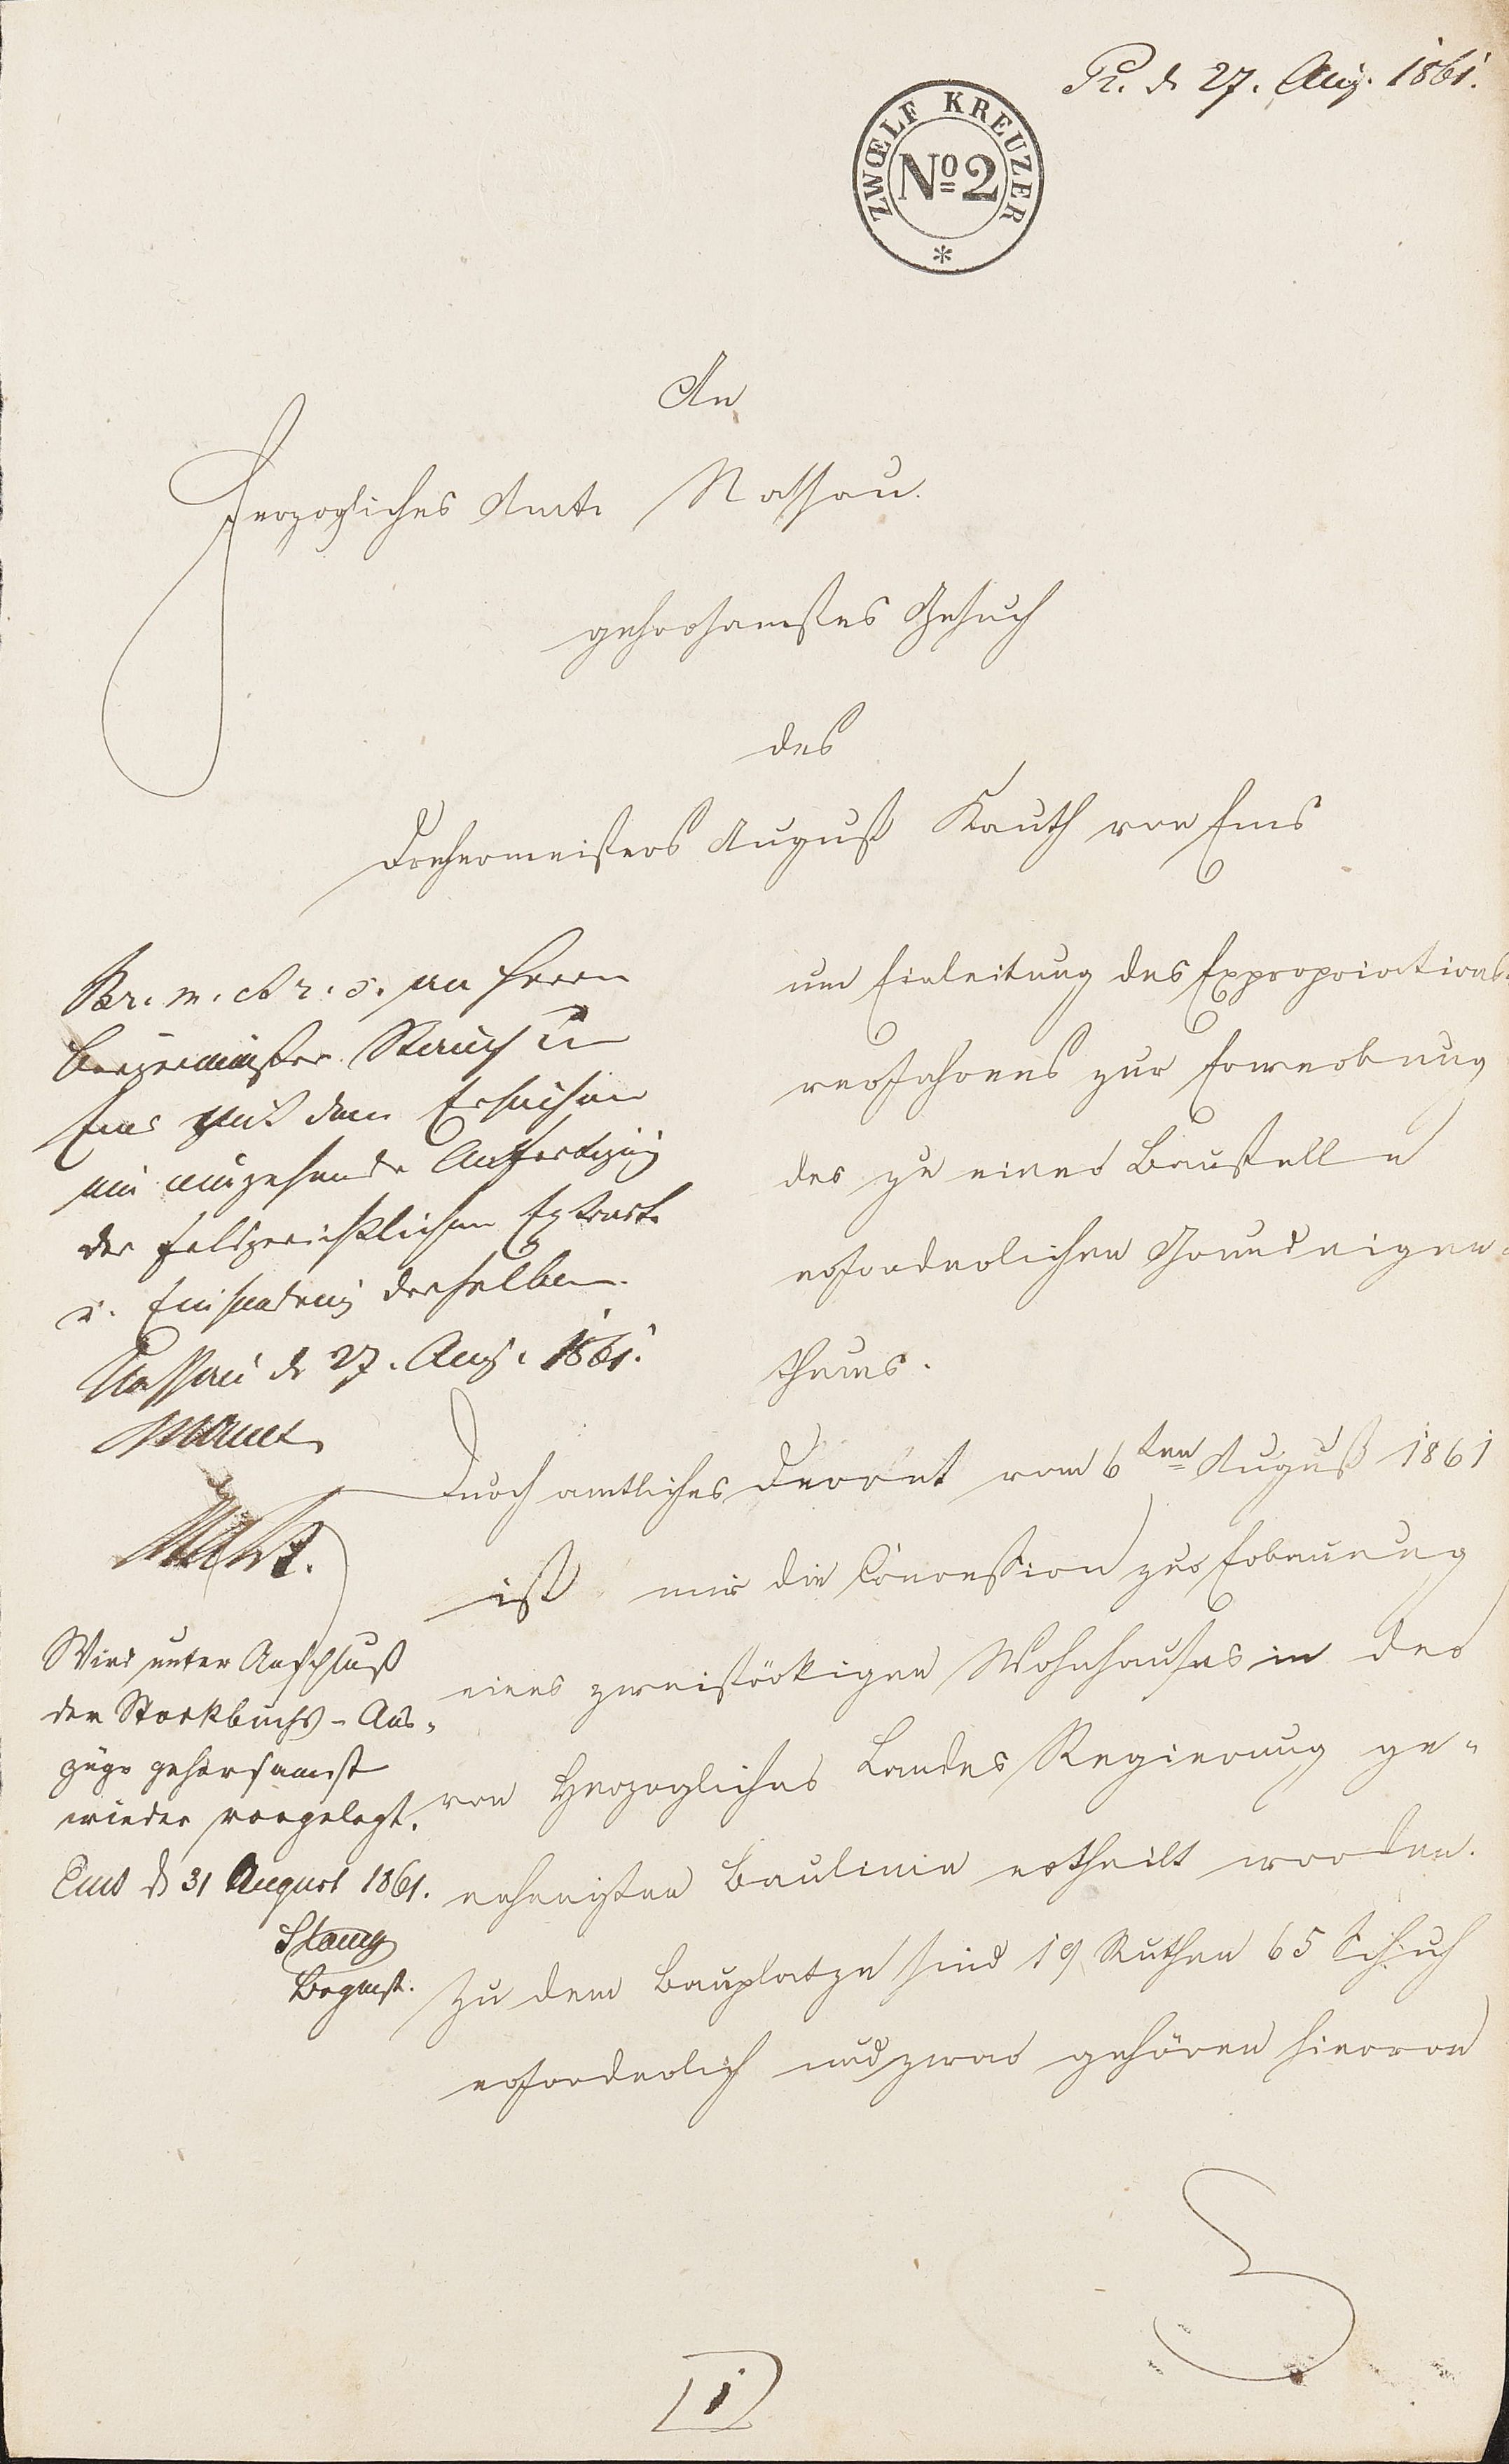 Pr. d. 27. Aug. 1861.
ZWŒLF KREUZER
No 2
An
Herzogliches Amt Nassau.
gehorsamstes Gesuch
des
Drehermeisters August Kauth von Ems
um Einleitung des Expropriations-
verfahrens zur Erwerbung
des zu einer Baustelle
erforderlichen Grundeigen-
thums.
Br. m. an Herrn
Bürgermeister in
Ems mit dem Ersuchen
um umgehende Anfertigung
der feldgerichtlichen Extracte
u. Einsendung derselben.
Nassau d. 27. Aug. 1861.
Durch amtliches Decret vom 6ten August 1861
ist mir die Concession zur Erbauung
eines zweistöckigen Wohnhauses in der
von Herzoglicher Landes Regierung ge-
nehmigten Baulinie ertheilt worden.
Zu dem Bauplatze sind 19 Ruthen 65 Schuh
erforderlich und zwar gehören hiervon
Wird unter Anschluß
der Stockbuchs-Aus-
züge gehorsamst
wieder vorgelegt.
Ems d 31 August 1861.
Brgmst.
1